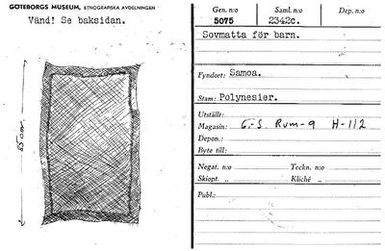 GÖTEBORGS MUSEUM, ETNOGRAFISKA AVDELNINGEN
Vänd! Se baksidan.
85 cm
Gen. n:o
5075
Saml. n:o
2342c.
Dep. n:o
Sovmatta för barn.
Fyndort: Samoa.
Stam: Polynesier.
Utställt:
Magasin: G-S Rum-9 H-112
Depon.:
Byte till:
Negat. n:o
Teckn. n:o
Skiopt. „
Kliché „
Publ.: